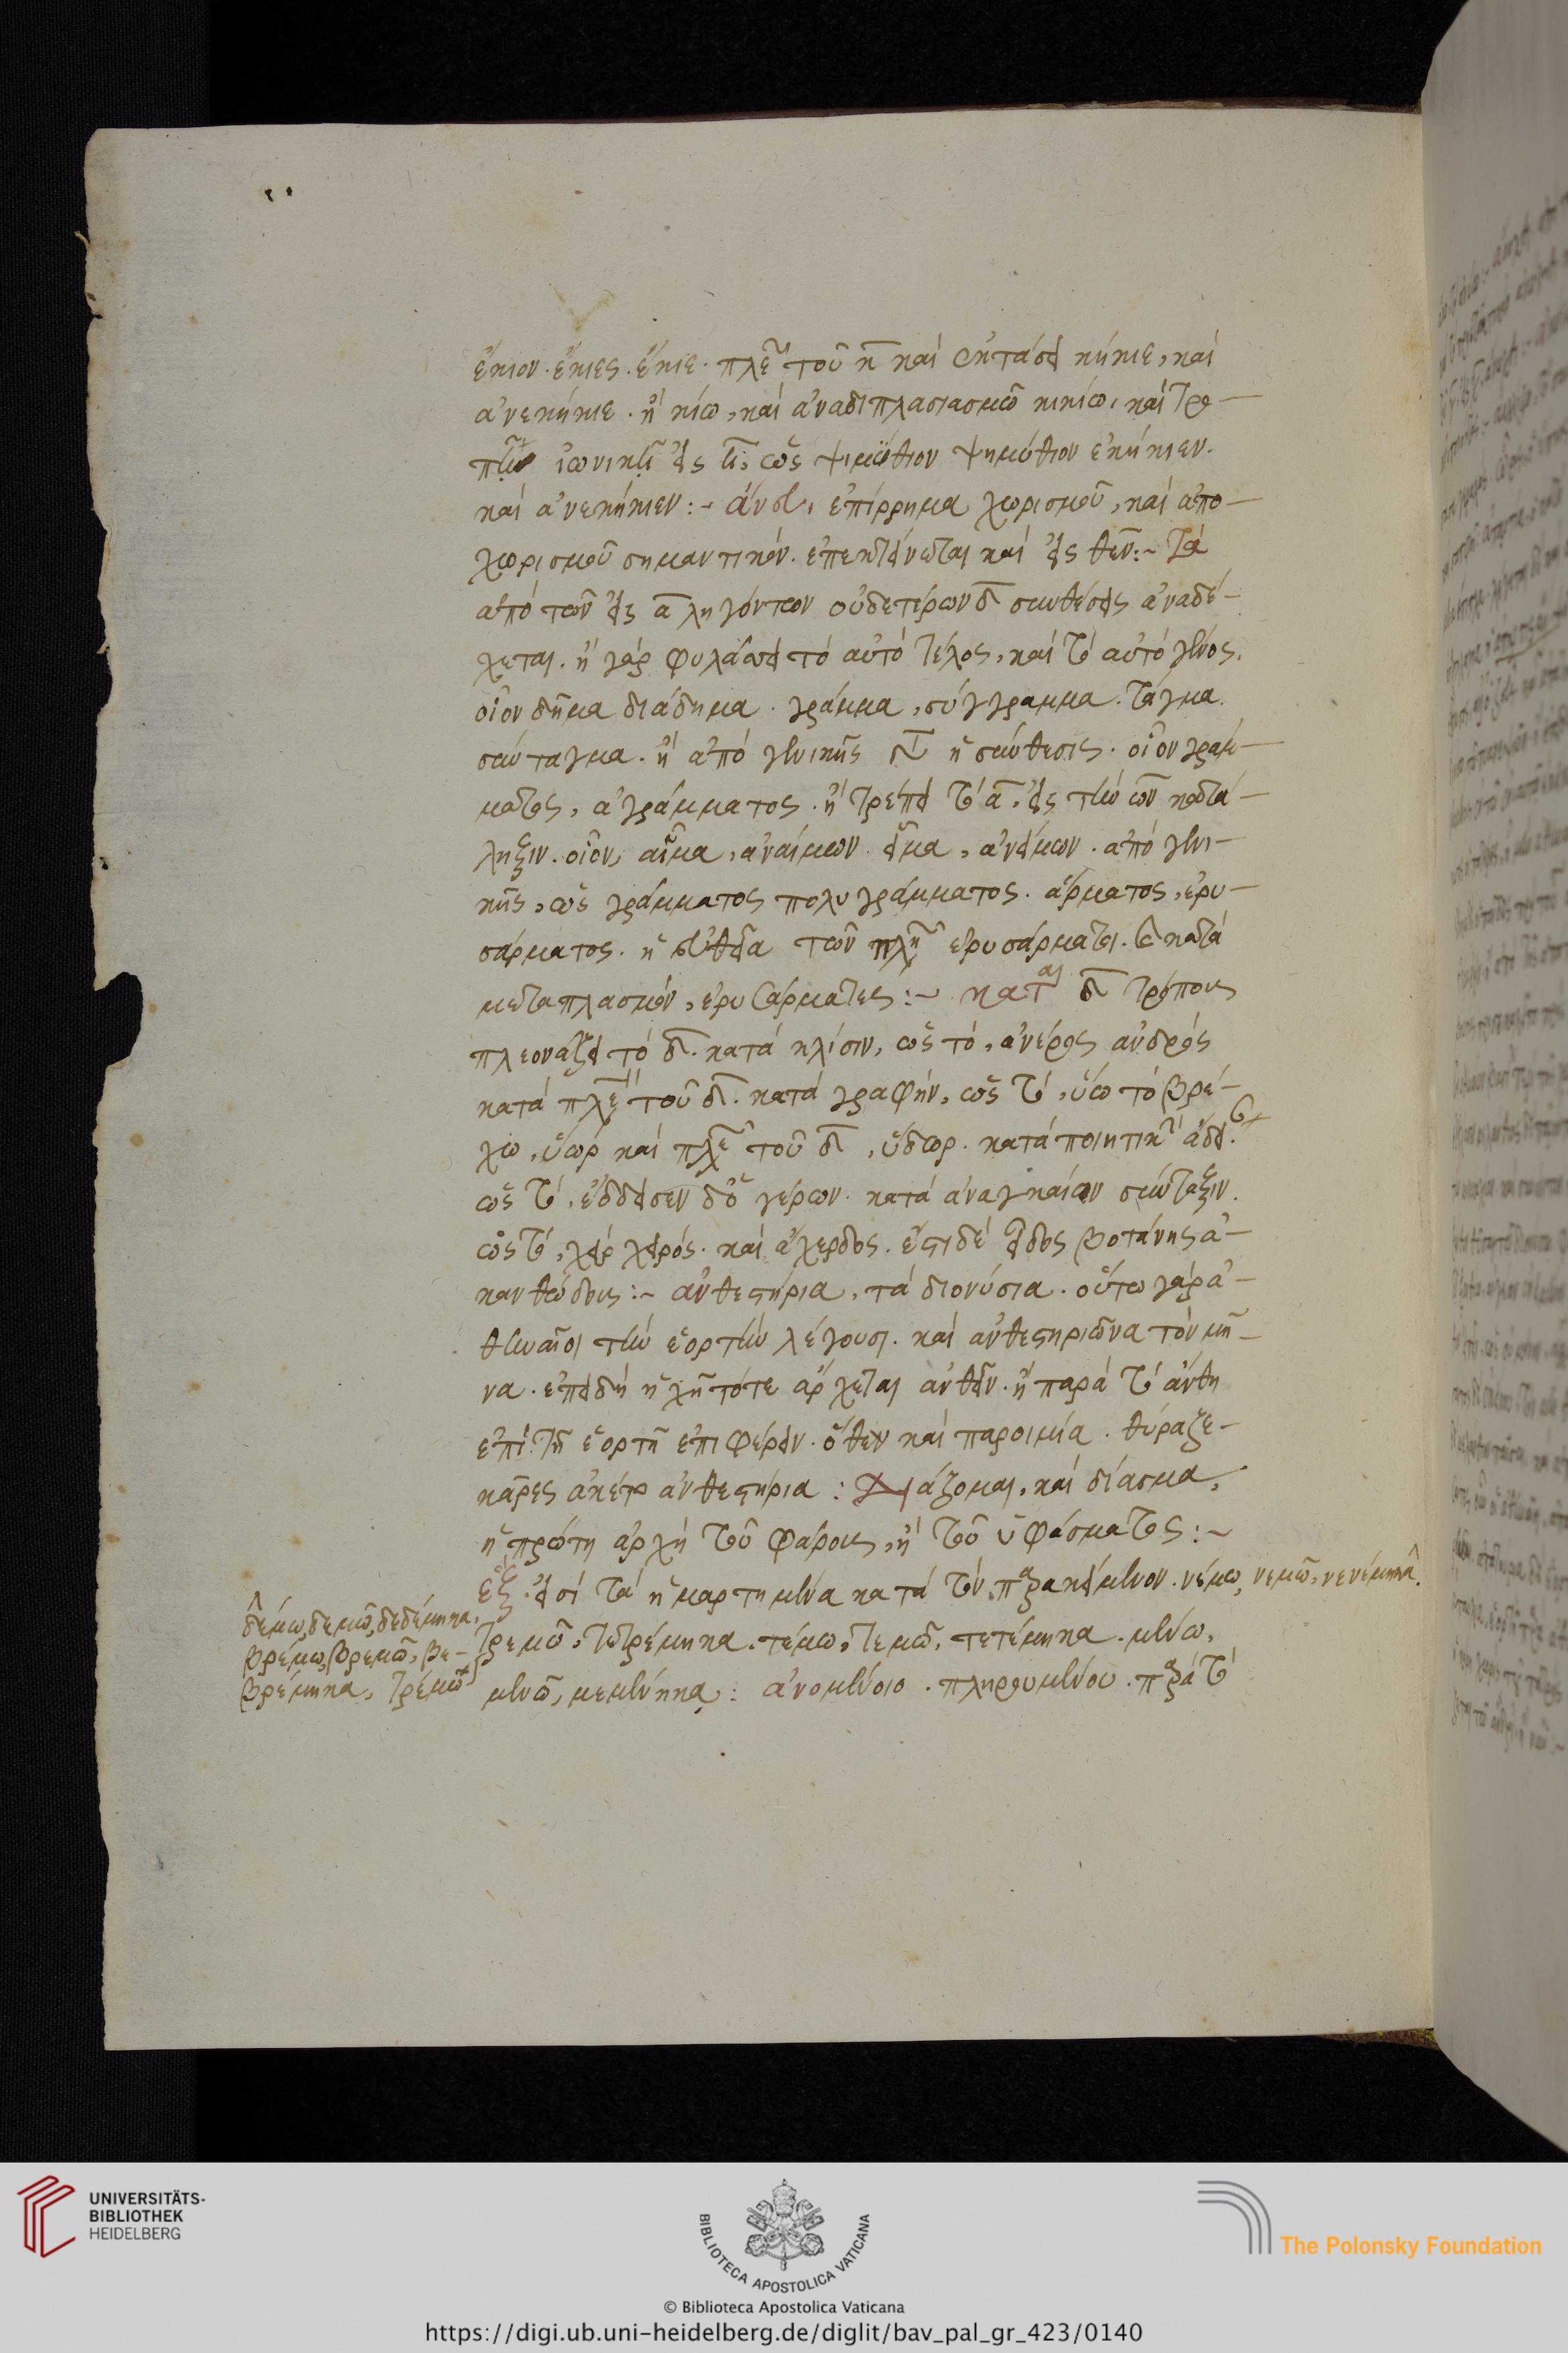 ἔκιον. ἔκιες. ἔκιε. πλε τοῦ κ καὶ ἐκτάσει κήκιε, καὶ
ἀνεκήκιε. ἢ κίω, καὶ ἀναδιπλασιασμῶ κικίω, καὶ τρο-
πῆ ἰωνικῆ εἰς η, ὡς ψιμύθιον ψημύθιον ἐκήκιεν.
καὶ ἀνεκήκιεν:~ ἄνευ, ἐπίρρημα χωρισμοῦ, καὶ ἀπο-
χωρισμοῦ σημαντικόν. ἐπεκτείνεται καὶ εἰς θεν:~ Τὰ
ἀπὸ τῶν εἰς α ληγόντων οὐδετέρων δ συνθέσεις ἀναδέ-
χεται. ἢ γὰρ φυλάσσει τὸ αὐτὸ τέλος, καὶ τὸ αὐτὸ γένος.
οἷον δῆμα διάδημα. γράμμα, σύγγραμμα. τάγμα.
σύνταγμα. ἢ ἀπὸ γενικῆς ἡ σύνθεσις. οἷον γράμ-
ματος, ἀγράμματος. ἢ τρέπει τὸ α, εἰς τὴν ων κατά-
ληξιν. οἷον, αἷμα, ἀναίμων. εἷμα, ἀνείμων. ἀπὸ γενι-
κῆς, ὡς γράμματος πολυγράμματος. ἅρματος, ἐρυ-
σάρματος. ἡ εὐθεῖα τῶν πλη ἐρυσάρματοι. καὶ κατὰ
μεταπλασμόν, ἐρυσάρματες:~ κατ δ τρόπους
πλεονάζει τὸ δ. κατὰ κλίσιν, ὡς τὸ, ἀνέρος ἀνδρός
κατὰ πλε τοῦ δ. κατὰ γραφήν, ὡς τὸ, ὕω τὸ βρέ-
χω, ὕωρ καὶ πλε τοῦ δ, ὕδωρ. κατὰ ποιητικ ἄδει.
ὡς τὸ, ἔδδεισεν δ ὁ γέρων. κατὰ ἀναγκαίαν σύνταξιν.
ὡς τὸ, χεὶρ χειρός. καὶ ἄχερδος. ἔστι δὲ εἶδος βοτάνης ἀ-
κανθώδους:~ ἀνθεστήρια, τὰ διονύσια. οὕτω γὰρ ἀ-
θηναῖοι τὴν ἑορτὴν λέγουσι. καὶ ἀνθεστηριῶνα τὸν μῆ-
να. ἐπειδὴ ἡ γῆ τότε ἄρχεται ἀνθεῖν. ἢ παρὰ τὸ ἄνθη
ἐπὶ τῆ ἑορτῆ ἐπιφέρειν. ὅθεν καὶ παροιμία. θύραζε-
κᾶρες οὐκέτ ἀνθεστήρια: Διάζομαι, καὶ δίασμα,
ἡ πρώτη ἀρχὴ τοῦ φάρους, ἢ τοῦ ὑφάσματος:~
ἓξ εἰσὶ τὰ ἡμαρτημένα κατὰ τὸν παρακείμενον. νέμω, νεμῶ, νενέμηκα.
δέμω, δεμῶ, δεδέμηκα,
βρέμω, βρεμῶ, βε-
βρέμηκα, τρέμω
τρεμῶ, τετρέμηκα. τέμω, τεμῶ, τετέμηκα. μένω,
μενῶ, μεμένηκα: ἀνομένοιο. πληρουμένου. παρὰ τὸ
UNIVERSITÄTS-
BIBLIOTHEK
HEIDELBERG
BIBLIOTECA APOSTOLICA VATICANA
The Polonsky Foundation
© Biblioteca Apostolica Vaticana
https://digi.ub.uni-heidelberg.de/diglit/bav_pal_gr_423/0140